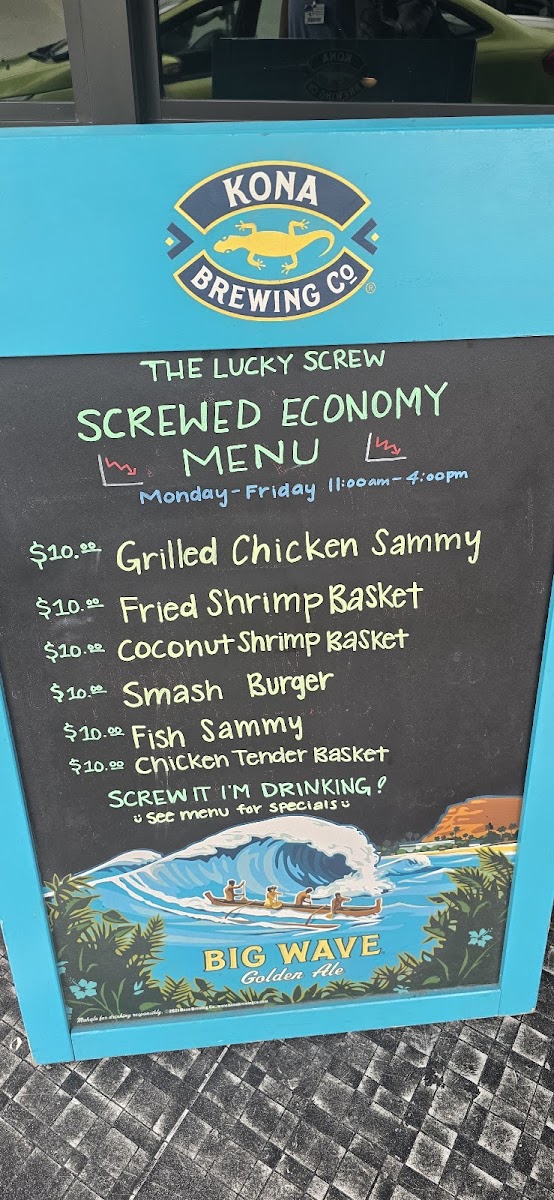 KONA
BREWING Co®
THE LUCKY SCREW
SCREWED ECONOMY
MENU
Monday-Friday 11:00am-4:00pm
$10.00 Grilled Chicken Sammy
$10.00 Fried Shrimp Basket
$10.00 Coconut Shrimp Basket
$10.00 Smash Burger
$10.00 Fish Sammy
$10.00 Chicken Tender Basket
SCREW IT I'M DRINKING!
see menu for specials
BIG WAVE
Golden Ale
Mahalo for drinking responsibly.